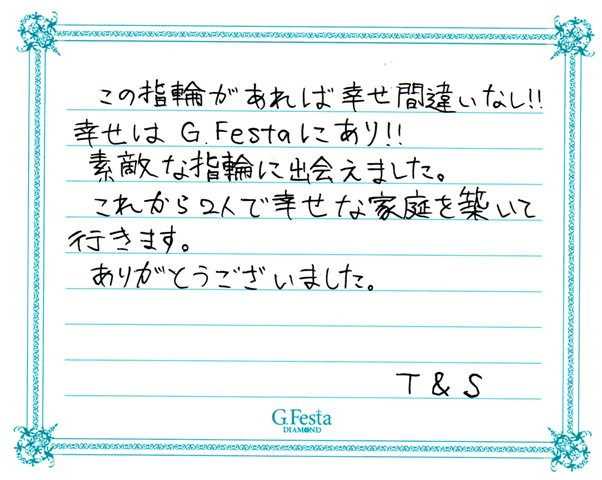 この指輪があれば幸せ間違いなし!!
幸せは G.Festaにあり!!
素敵な指輪に出会えました。
これから2人で幸せな家庭を築いて
行きます。
ありがとうございました。
T & S
G.Festa
DIAMOND